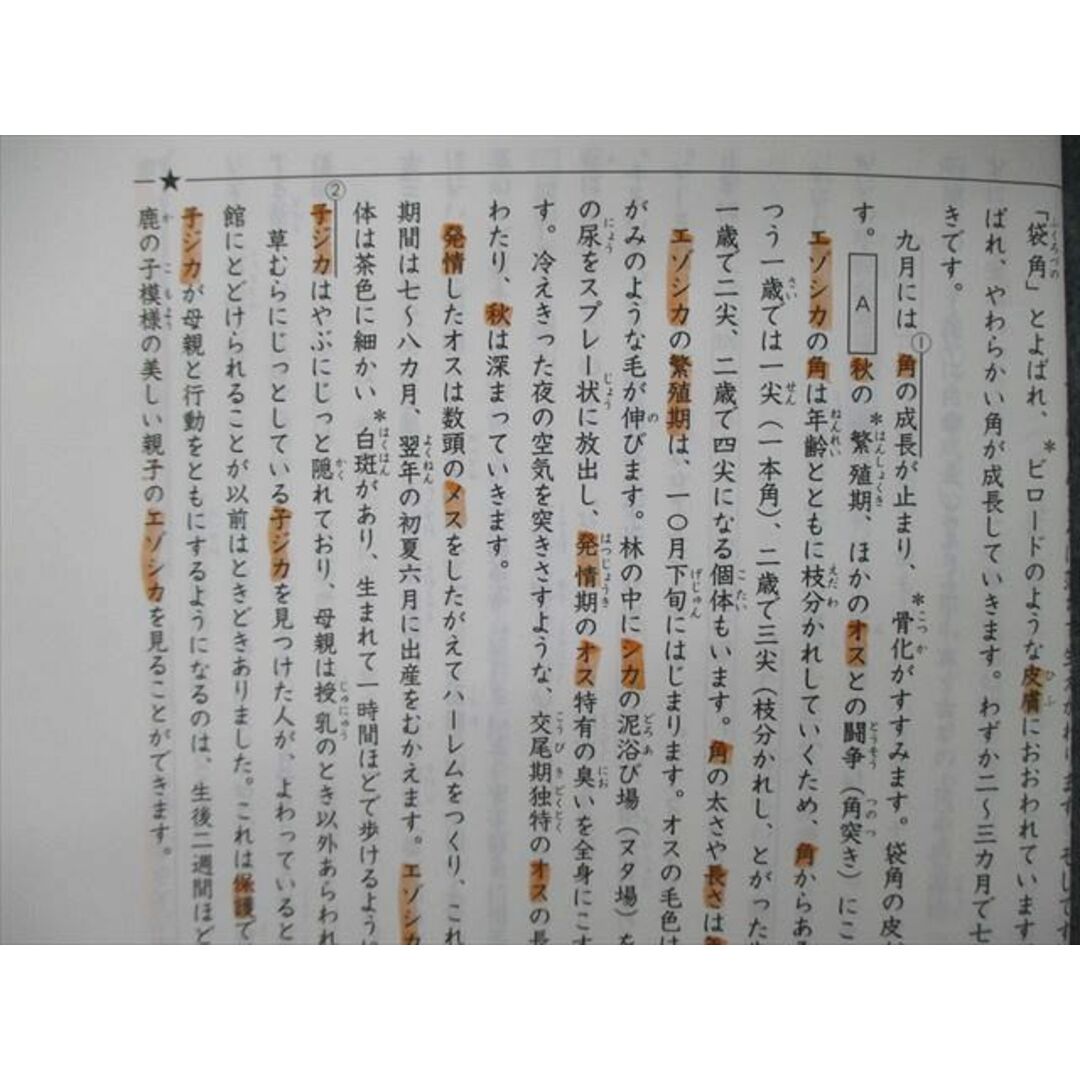 「袋角」とよばれ、*ビロードのような皮膚におおわれています
ばれ、やわらかい角が成長していきます。わずか二〜三カ月で七
きです。
九月には①角の成長が止まり、*骨化がすすみます。袋角の皮
す。 A 秋の*繁殖期、ほかのオスとの闘争（角突き）にこ
エゾシカの角は年齢とともに枝分かれしていくため、角からある
つう一歳では一尖（一本角）、二歳で三尖（枝分かれし、とがった
一歳で二尖、二歳で四尖になる個体もいます。角の太さや長さは
エゾシカの繁殖期は、一〇月下旬にはじまります。オスの毛色は
がみのような毛が伸びます。林の中にシカの泥浴び場（ヌタ場）を
の尿をスプレー状に放出し、発情期のオス特有の臭いを全身にこす
す。冷えきった夜の空気を突きさすような、交尾期独特のオスの長
わたり、秋は深まっていきます。
発情したオスは数頭のメスをしたがえてハーレムをつくり、これ
期間は七〜八カ月、翌年の初夏六月に出産をむかえます。エゾシカ
体は茶色に細かい*白斑があり、生まれて一時間ほどで歩けるように
②子ジカはやぶにじっと隠れており、母親は授乳のとき以外あらわれ
草むらにじっとしている子ジカを見つけた人が、よわっていると
館にとどけられることが以前はときどきありました。これは保護で
子ジカが母親と行動をともにするようになるのは、生後二週間ほど
鹿の子模様の美しい親子のエゾシカを見ることができます。